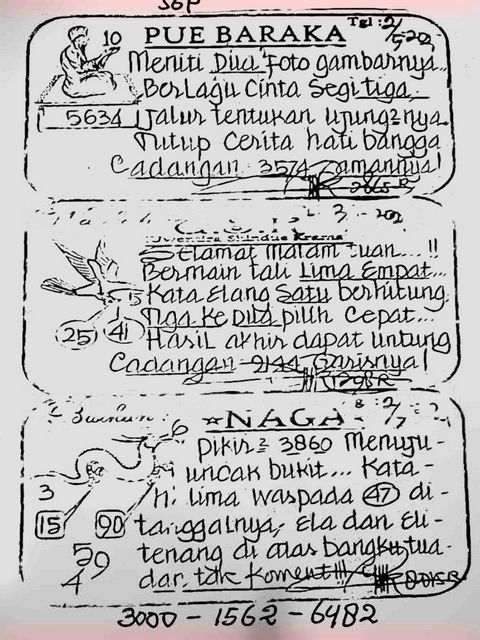 SGP
PUE BARAKA
10
Meniti Dua Foto gambarnya..
BerLagu Cinta Segitiga,
5634
Jalur tentukan ujung2nya
Tutup Cerita hati bangga
Cadangan 3574 Zamannya!
Selamat malam tuan...!!
Bermain tali Lima Empat...
15 Kata Elang Satu berhitung
25 41 Tiga Ke Dua pilih Cepat...
Hasil akhir dapat untung
Cadangan 2144 Garisnya!
☆NAGA
6
Pikir2 3860 Menuju-
uncak bukit... Kata-
3
lima waspada 47 di-
15 90 tanggalnya, Ela dan Eli-
59 tenang di atas bangku tua-
4 dan tak koment!!!
3000 - 1562 - 6482